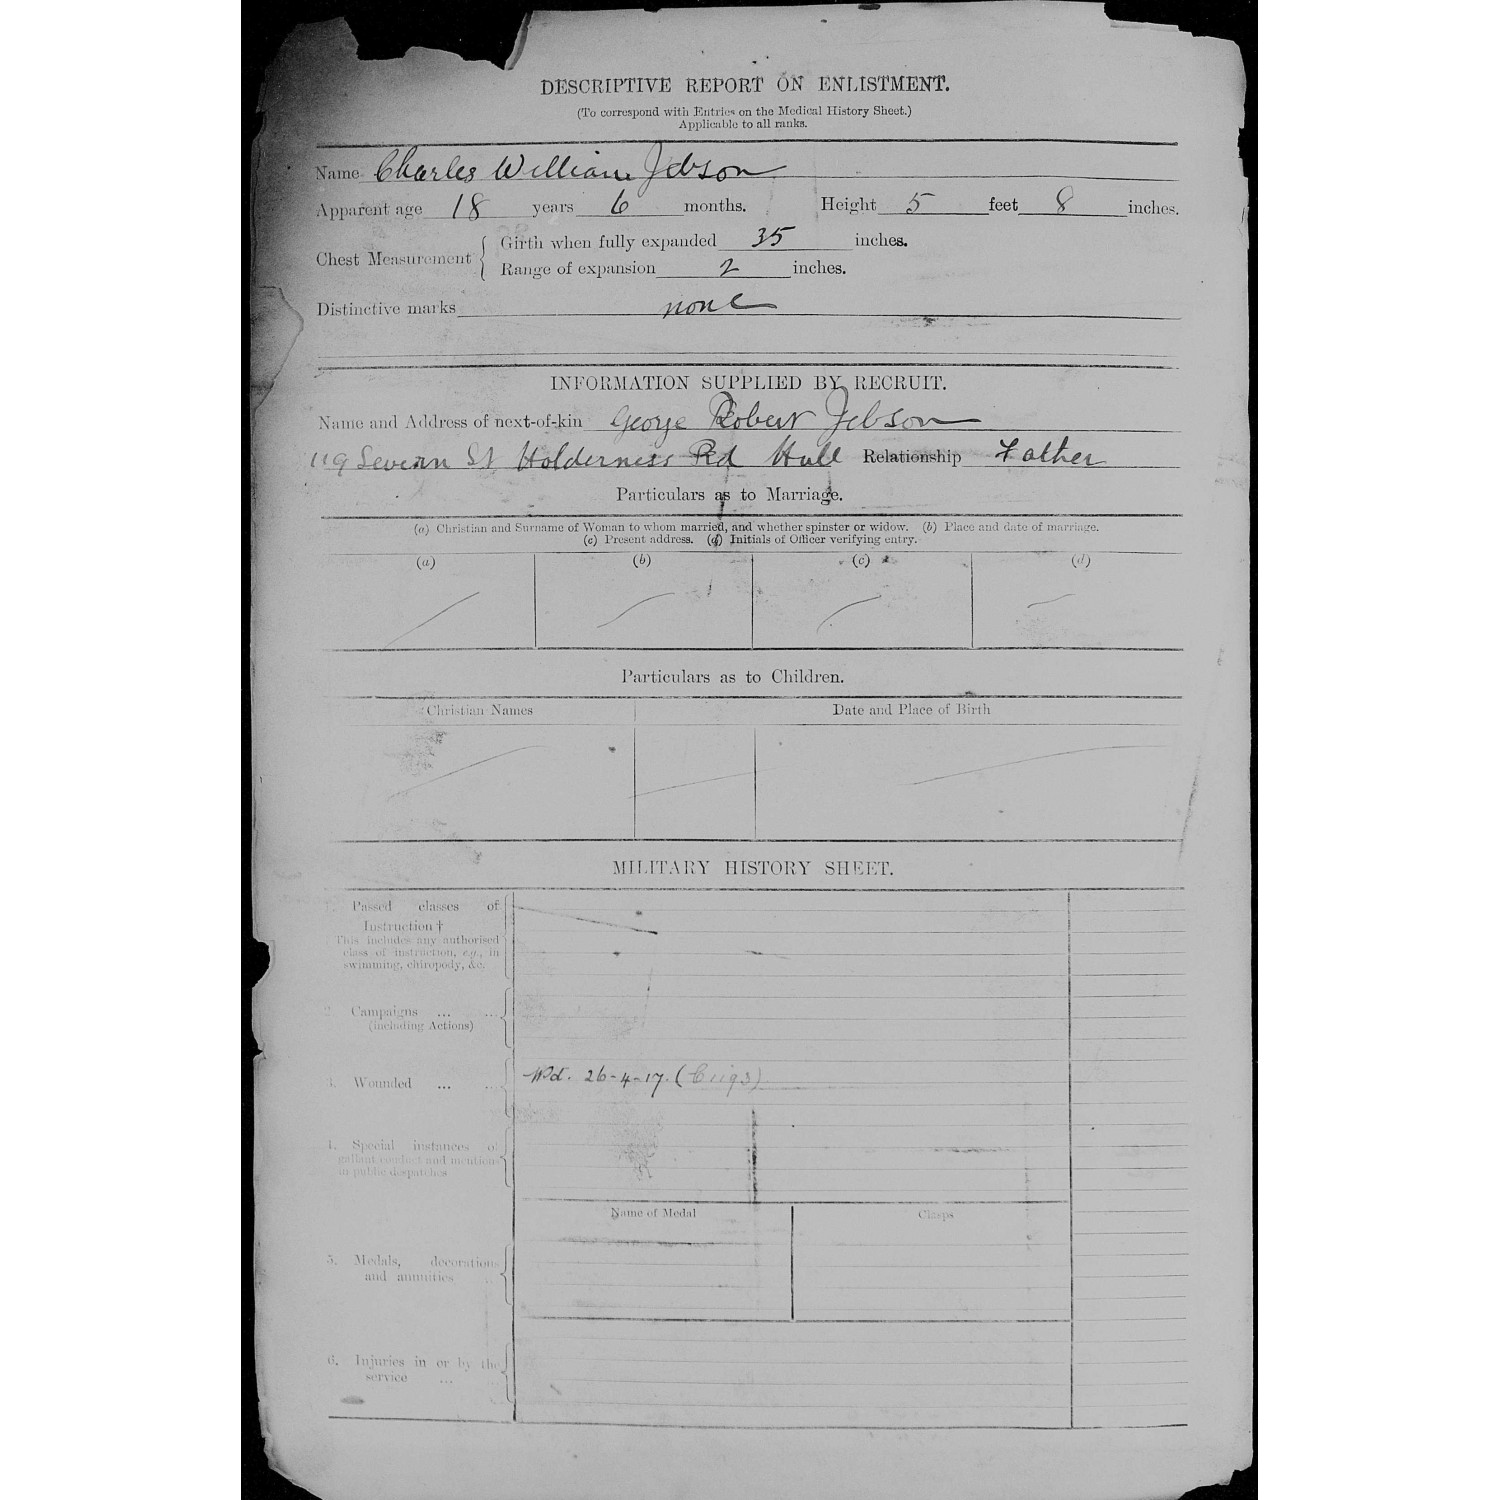 DESCRIPTIVE REPORT ON ENLISTMENT.
(To correspond with Entries on the Medical History Sheet.)
Applicable to all ranks.
Name Charles William Jebson
Apparent age 18 years 6 months. Height 5 feet 8 inches.
Chest Measurement { Girth when fully expanded 35 inches.
Range of expansion 2 inches.
Distinctive marks none
INFORMATION SUPPLIED BY RECRUIT.
Name and Address of next-of-kin George Robert Jebson
119 Severn St Holderness Rd Hull Relationship Father
Particulars as to Marriage.
(a) Christian and Surname of Woman to whom married, and whether spinster or widow. (b) Place and date of marriage.
(c) Present address. (d) Initials of Officer verifying entry.
(a) (b) (c) (d)
Particulars as to Children.
Christian Names Date and Place of Birth
MILITARY HISTORY SHEET.
1. Passed classes of
Instruction †
This includes any authorised
class of instruction, e.g., in
swimming, chiropody, &c.
2. Campaigns ... ...
(including Actions)
3. Wounded ... ... Wd. 26-4-17.
4. Special instances of
gallant conduct and mentions
in public despatches
Name of Medal Clasps
5. Medals, decorations
and annuities
6. Injuries in or by the
service ...